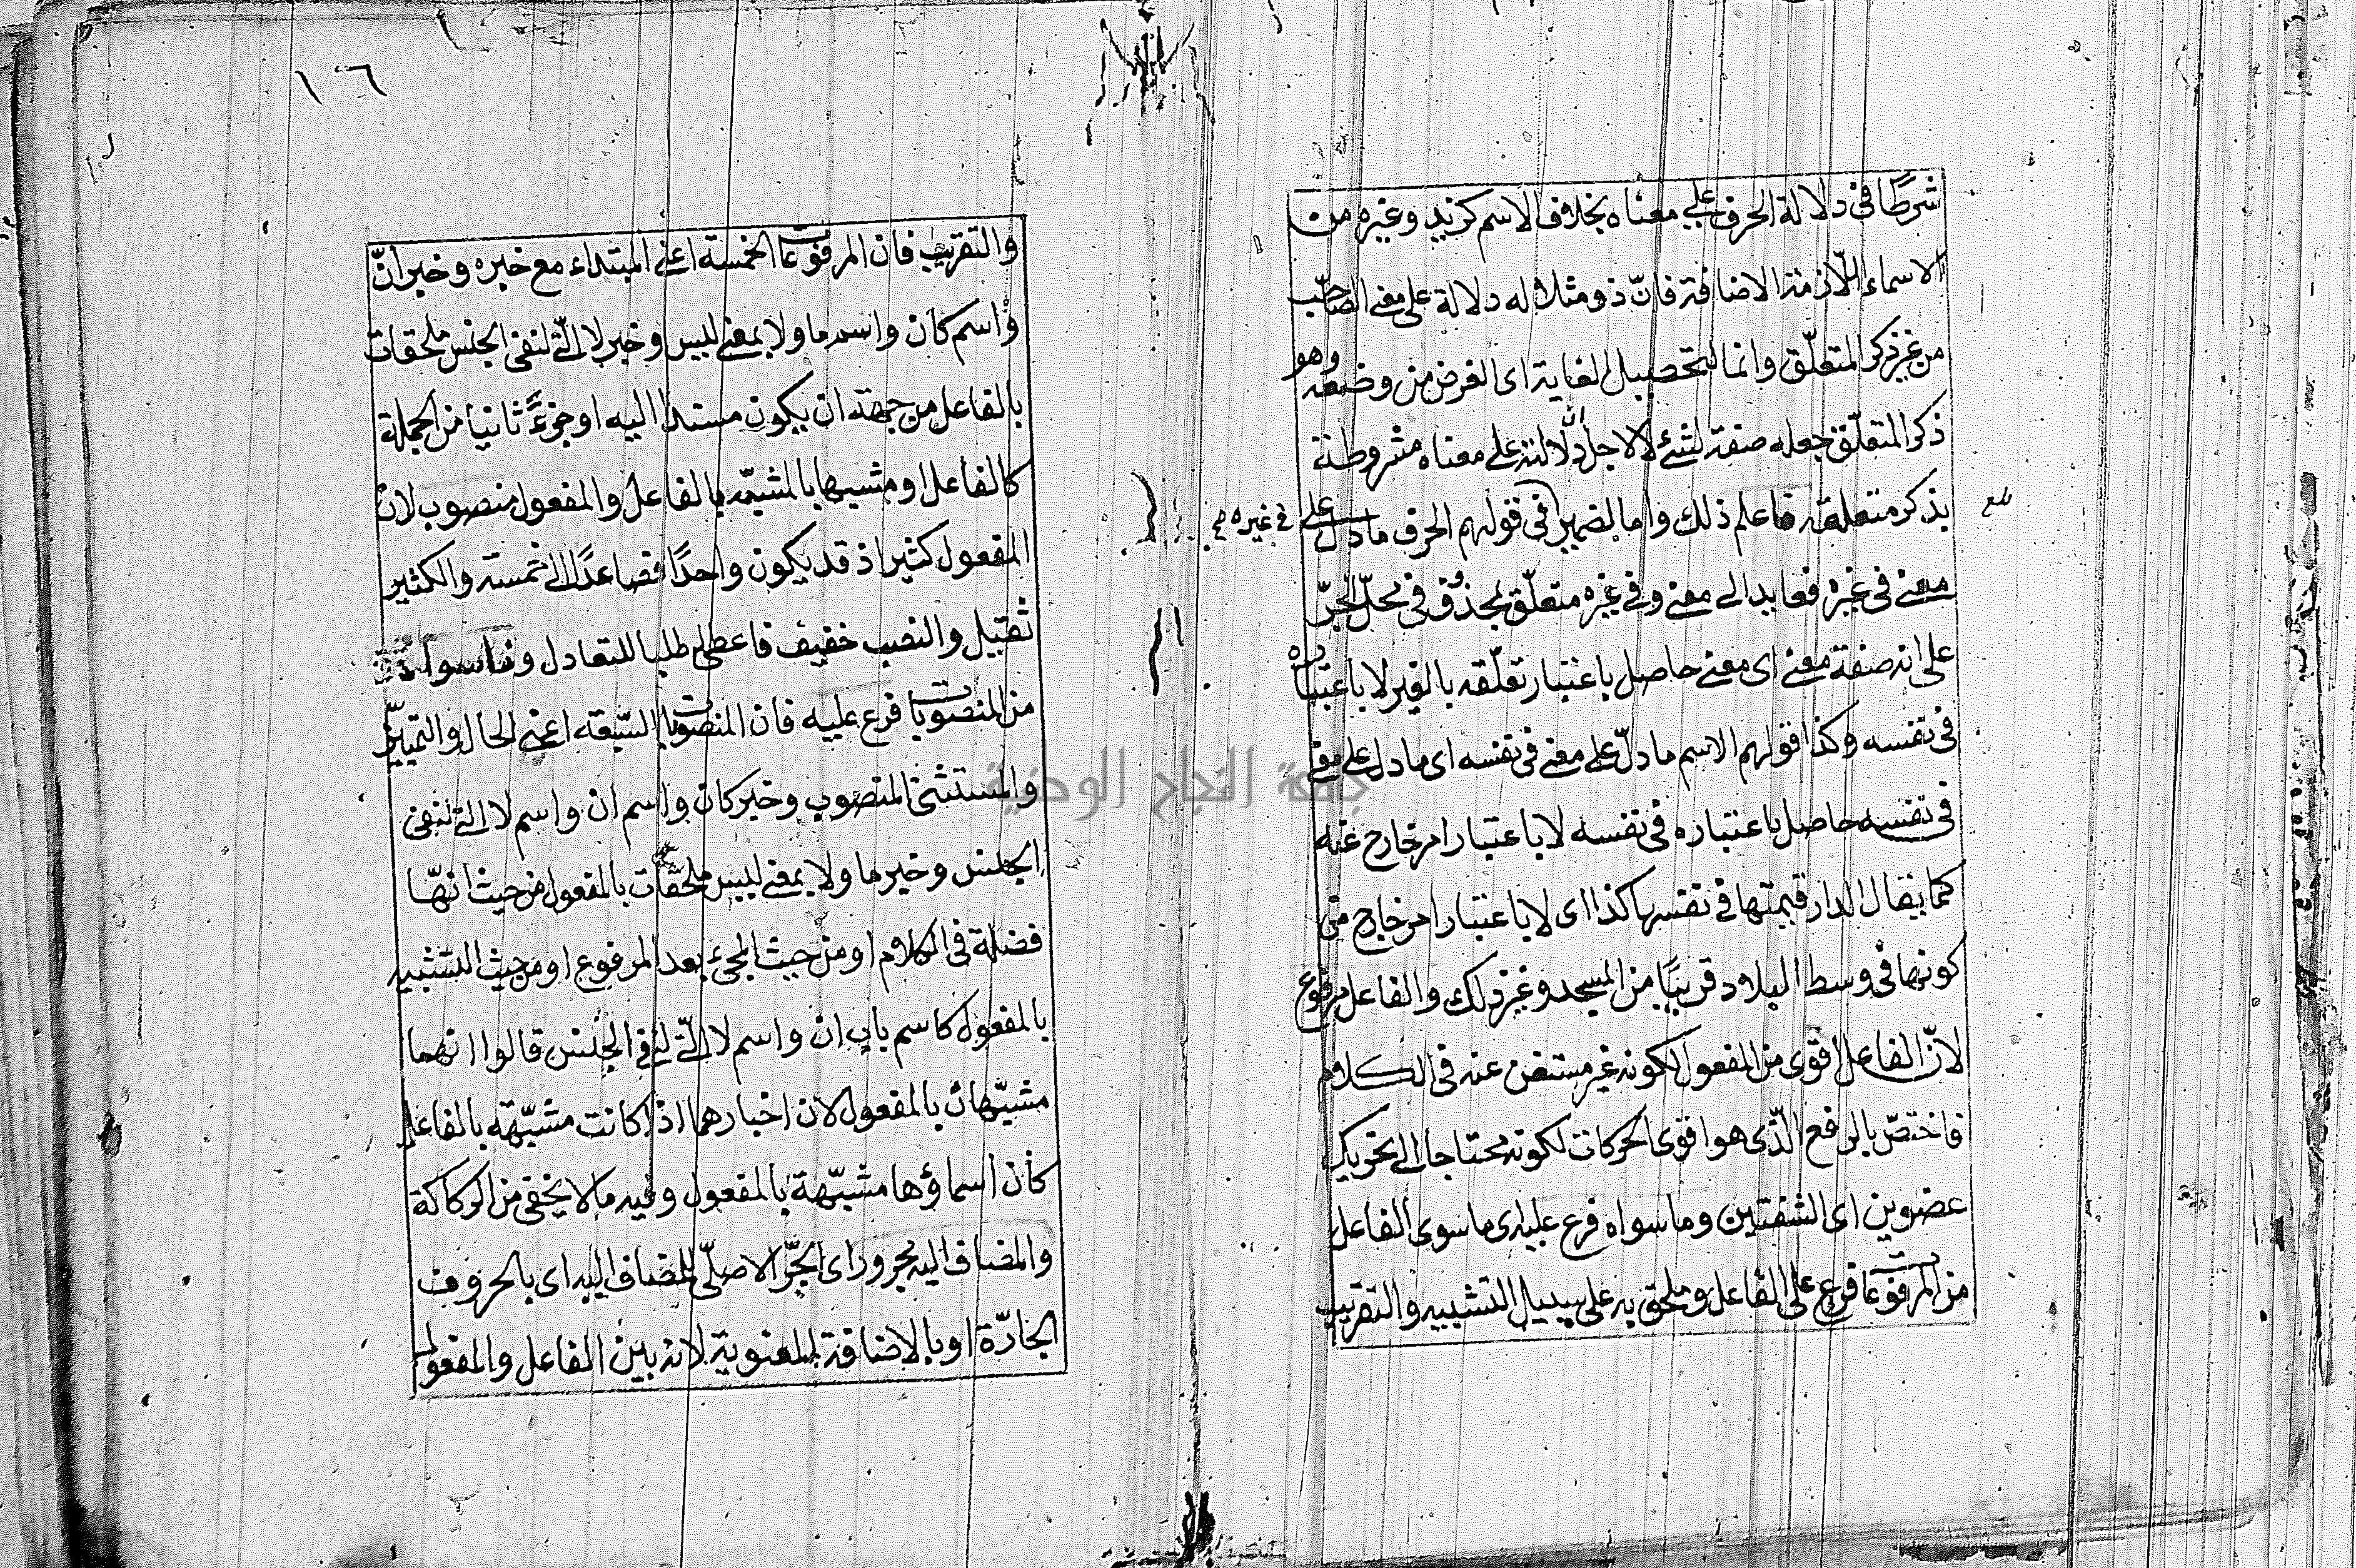 شرطًا فى دلالة الحرف على معناه بخلاف الاسم كزيد وغيره من
الاسماء اللّازمة الاضافة فانّ ذو مثلا له دلالة على معنى الصّاحب
من غير ذكر المتعلّق وانما لتحصيل الغاية اى الغرض من وضعه وهو
ذكر المتعلّق جعله صفة لشئ لا لاجل دلالته على معناه مشروطة
بذكر متعلقه فاعلم ذلك واما الضمير فى قولهم الحرف ما دلّ على
فى غيره
معنى فى غيره فعايد الى معنى وفى غيره متعلّق بمحذوف فى محلّ الجرّ
على انه صفة معنى اى معنى حاصل باعتبار تعلّقه بالغير لا باعتباره
فى نفسه وكذا قولهم الاسم ما دلّ على معنى فى نفسه اى ما دل على معنى
فى نفسه حاصل باعتباره فى نفسه لا باعتبار امر خارج عنه
كما يقال الدار قيمتها فى نفسها كذا اى لا باعتبار امر خارج من
كونها فى وسط البلاد قريبًا من المسجد وغير ذلك والفاعل مرفوع
لانّ الفاعل اقوى من المفعول لكونه غير مستغن عنه فى الكلام
فاختصّ بالرفع الّذى هو اقوى الحركات لكونه محتاجا الى تحريك
عضوين اى الشفتين وما سواه فرع عليه اى ما سوى الفاعل
من المرفوعات فرع على الفاعل وملحق به على سبيل التشبيه والتقريب
١٦
والتقريب فان المرفوعات الخمسة اعنى المبتداء مع خبره وخبر انّ
واسم كان واسم ما ولا بمعنى ليس وخبر لا الّتى لنفى الجنس ملحقات
بالفاعل من جهة ان يكون مسندا اليه او جزءً ثانيا من الجملة
كالفاعل ومشبها بالمشبّه بالفاعل والمفعول منصوب لان
المفعول كثير اذ قد يكون واحدًا فصاعدًا الى خمسة والكثير
ثقيل والنصب خفيف فاعطى طلبا للتعادل وما سواه
من المنصوبات فرع عليه فان المنصوبات السّبعة اعنى الحال والتميّيز
والمستثنى المنصوب وخبر كان واسم ان واسم لا التى لنفى
الجنس وخبر ما ولا بمعنى ليس ملحقات بالمفعول من حيث انهّا
فضلة فى الكلام او من حيث المجئ بعد المرفوع او من حيث التشبيه
بالمفعول كاسم باب ان واسم لا الّتى لنفى الجنس قالوا انهما
مشبّهان بالمفعول لان اخبارهما اذا كانت مشبّهة بالفاعل
كان اسماؤها مشبّهة بالمفعول وفيه ما لا يخفى من الركاكة
والمضاف اليه مجرور اى الجّر الاصلّى للمضاف اليه اى بالحروف
الجارّة او بالاضافة المعنوية لانه بين الفاعل والمفعول
جامعة النجاح الوطنية